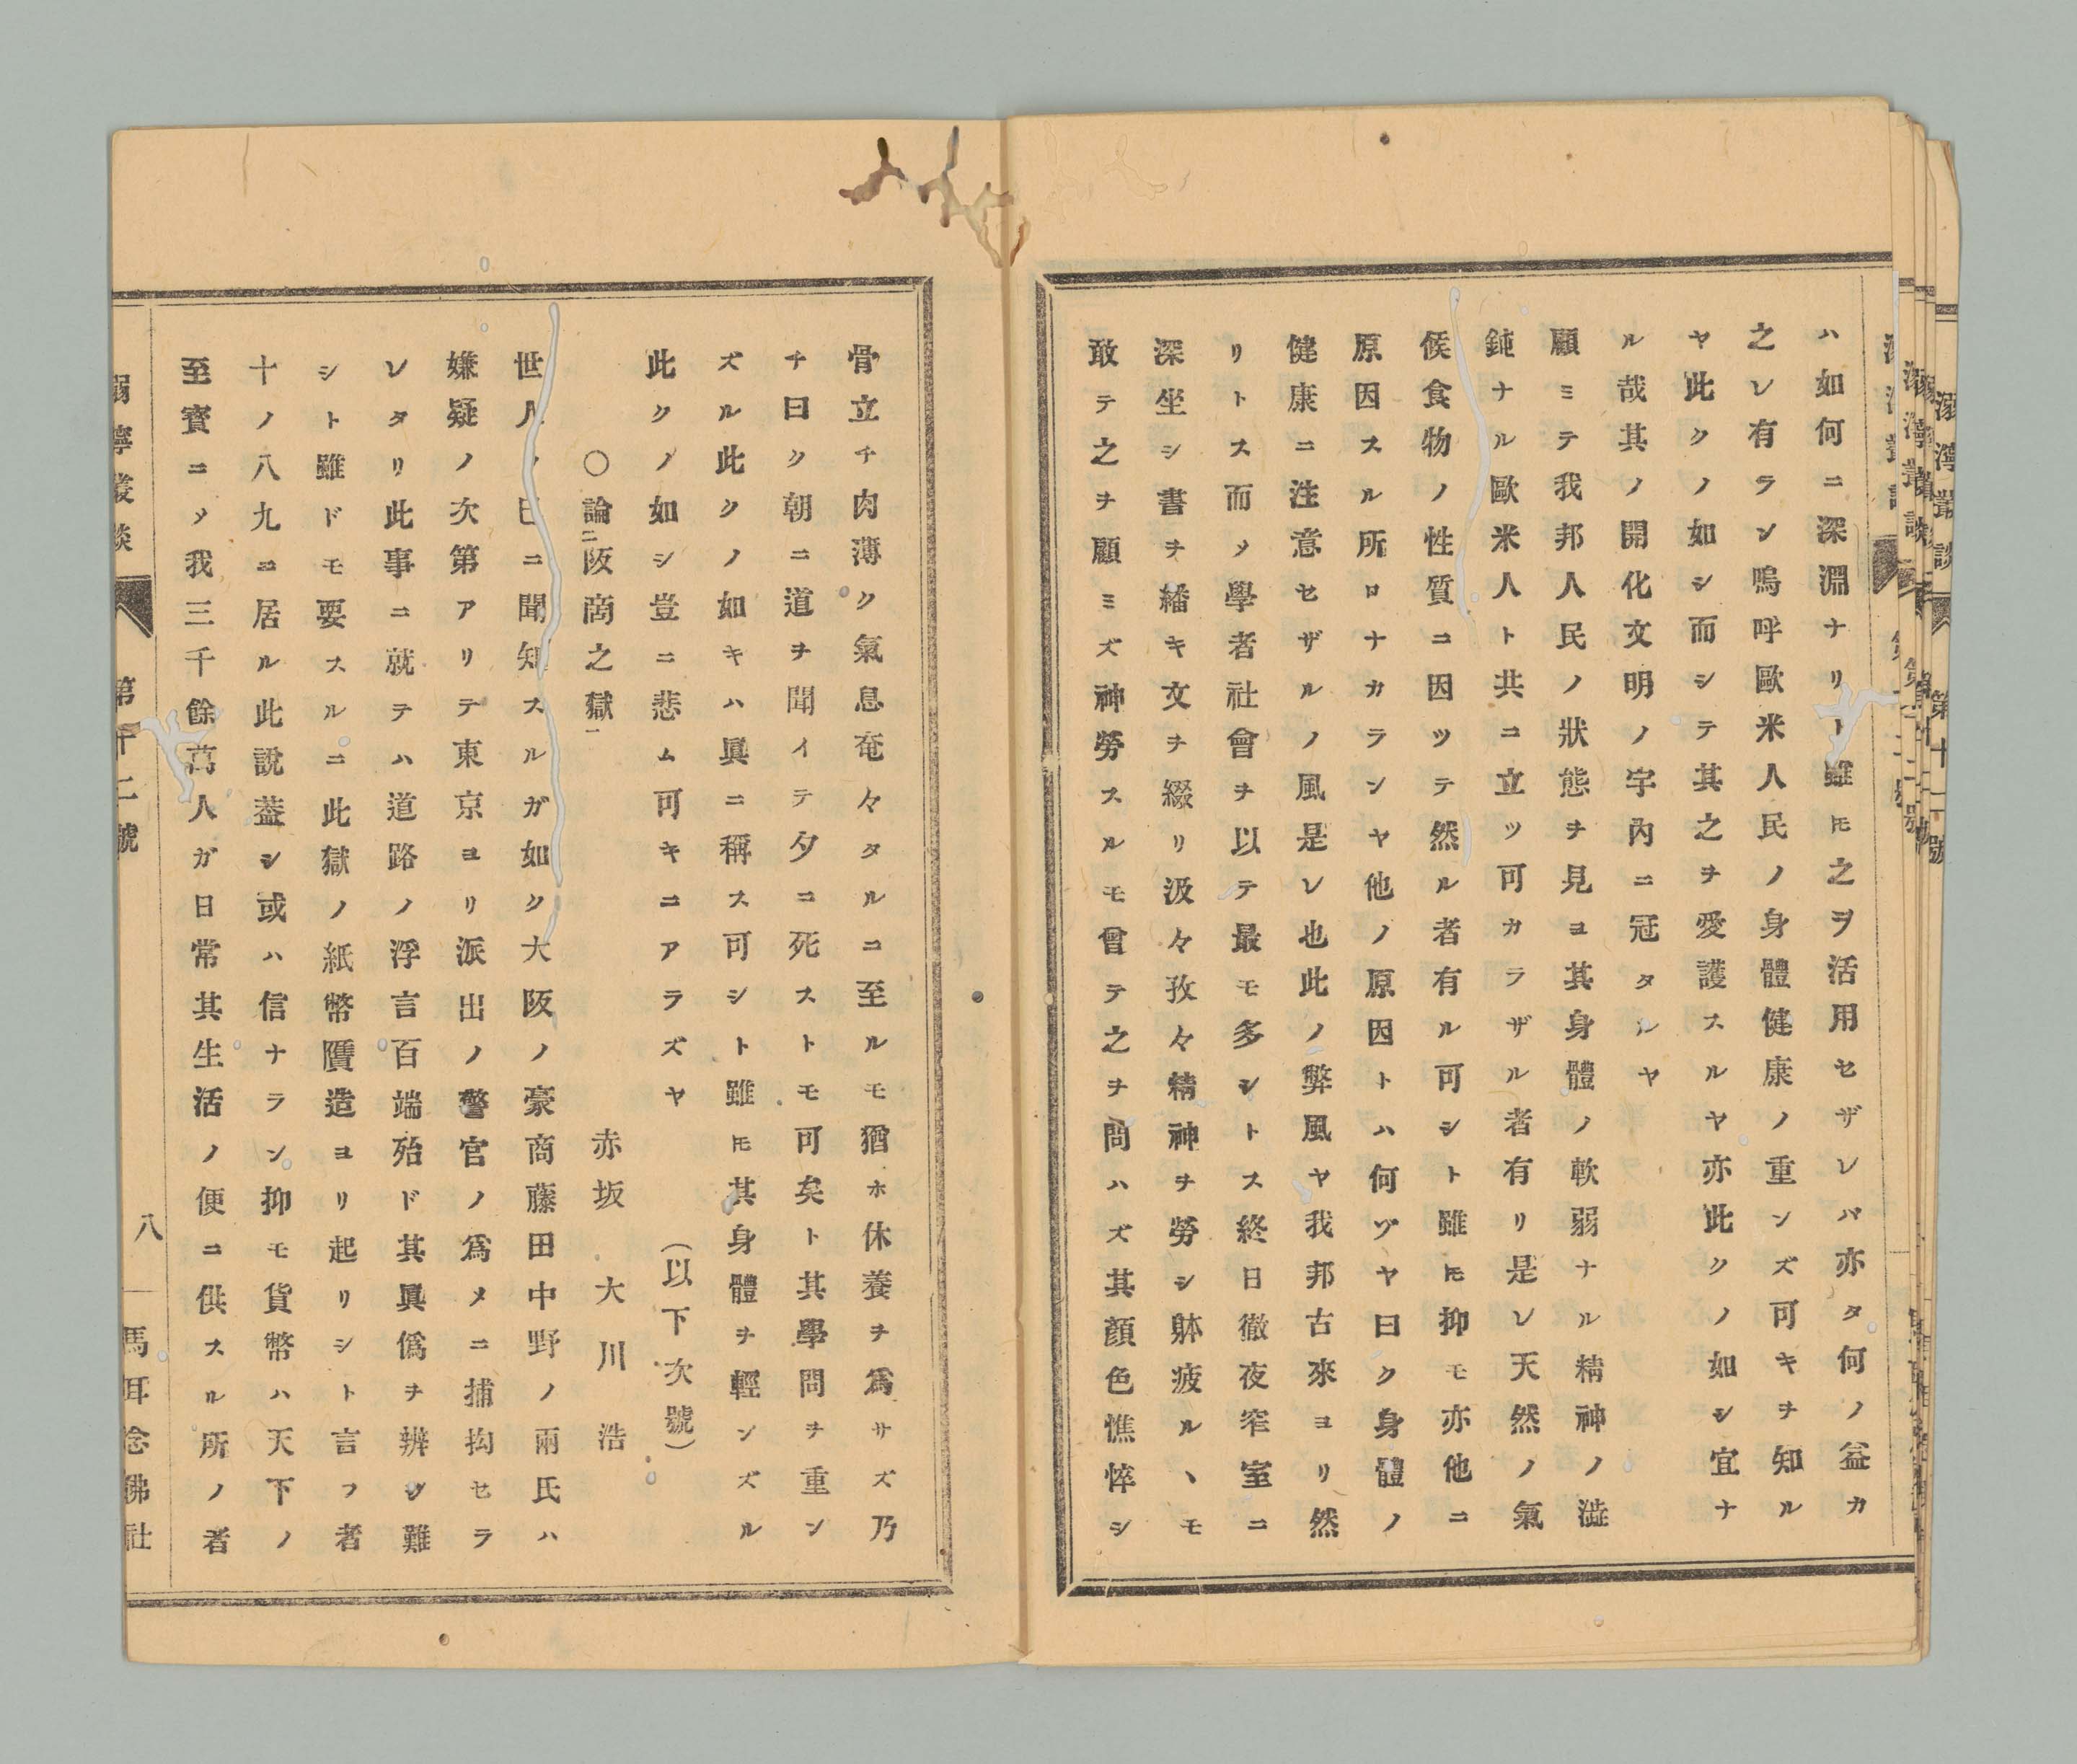 ハ如何ニ深淵ナリト雖モ之ヲ活用セザレバ亦タ何ノ益カ
之レ有ラン嗚呼歐米人民ノ身體健康ノ重ンズ可キヲ知ル
ヤ此クノ如シ而シテ其之ヲ愛護スルヤ亦此クノ如シ宜ナ
ル哉其ノ開化文明ノ宇內ニ冠タルヤ
顧ミテ我邦人民ノ狀態ヲ見ヨ其身體ノ軟弱ナル精神ノ澁
鈍ナル歐米人ト共ニ立ツ可カラザル者有リ是レ天然ノ氣
候食物ノ性質ニ因ツテ然ル者有ル可シト雖モ抑モ亦他ニ
原因スル所ロナカランヤ他ノ原因トハ何ヅヤ曰ク身體ノ
健康ニ注意セザルノ風是レ也此ノ弊風ヤ我邦古來ヨリ然
リトス而メ學者社會ヲ以テ最モ多シトス終日徹夜窄室ニ
深坐シ書ヲ繙キ文ヲ綴リ汲々孜々精神ヲ勞シ躰疲ルヽモ
敢テ之ヲ顧ミズ神勞スルモ曾テ之ヲ問ハズ其顏色憔悴シ
骨立チ肉薄ク氣息奄々タルニ至ルモ猶ホ休養ヲ爲サズ乃
チ曰ク朝ニ道ヲ聞イテ夕ニ死ストモ可矣ト其學問ヲ重ン
ズル此クノ如キハ眞ニ稱ス可シト雖モ其身體ヲ輕ンズル
此クノ如シ豈ニ悲ム可キニアラズヤ (以下次號)
○論二阪商之獄一 赤坂 大川 浩
世人ノ已ニ聞知スルガ如ク大阪ノ豪商藤田中野ノ兩氏ハ
嫌疑ノ次第アリテ東京ヨリ派出ノ警官ノ爲メニ捕拘セラ
レタリ此事ニ就テハ道路ノ浮言百端殆ド其眞僞ヲ辨ジ難
シト雖ドモ要スルニ此獄ノ紙幣贋造ヨリ起リシト言フ者
十ノ八九ニ居ル此說蓋シ或ハ信ナラン抑モ貨幣ハ天下ノ
至寶ニメ我三千餘萬人ガ日常其生活ノ便ニ供スル所ノ者
溺濘叢談 第十二號 八 馬耳念佛社